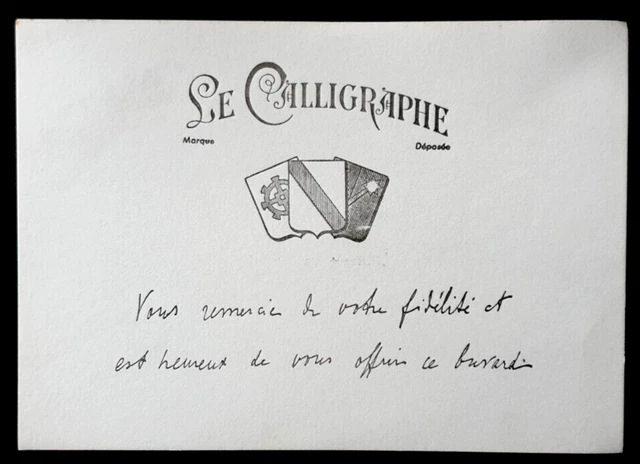 LE CALLIGRAPHE
Marque Déposée
Vous remercie de votre fidélité et
est heureux de vous offrir ce buvard